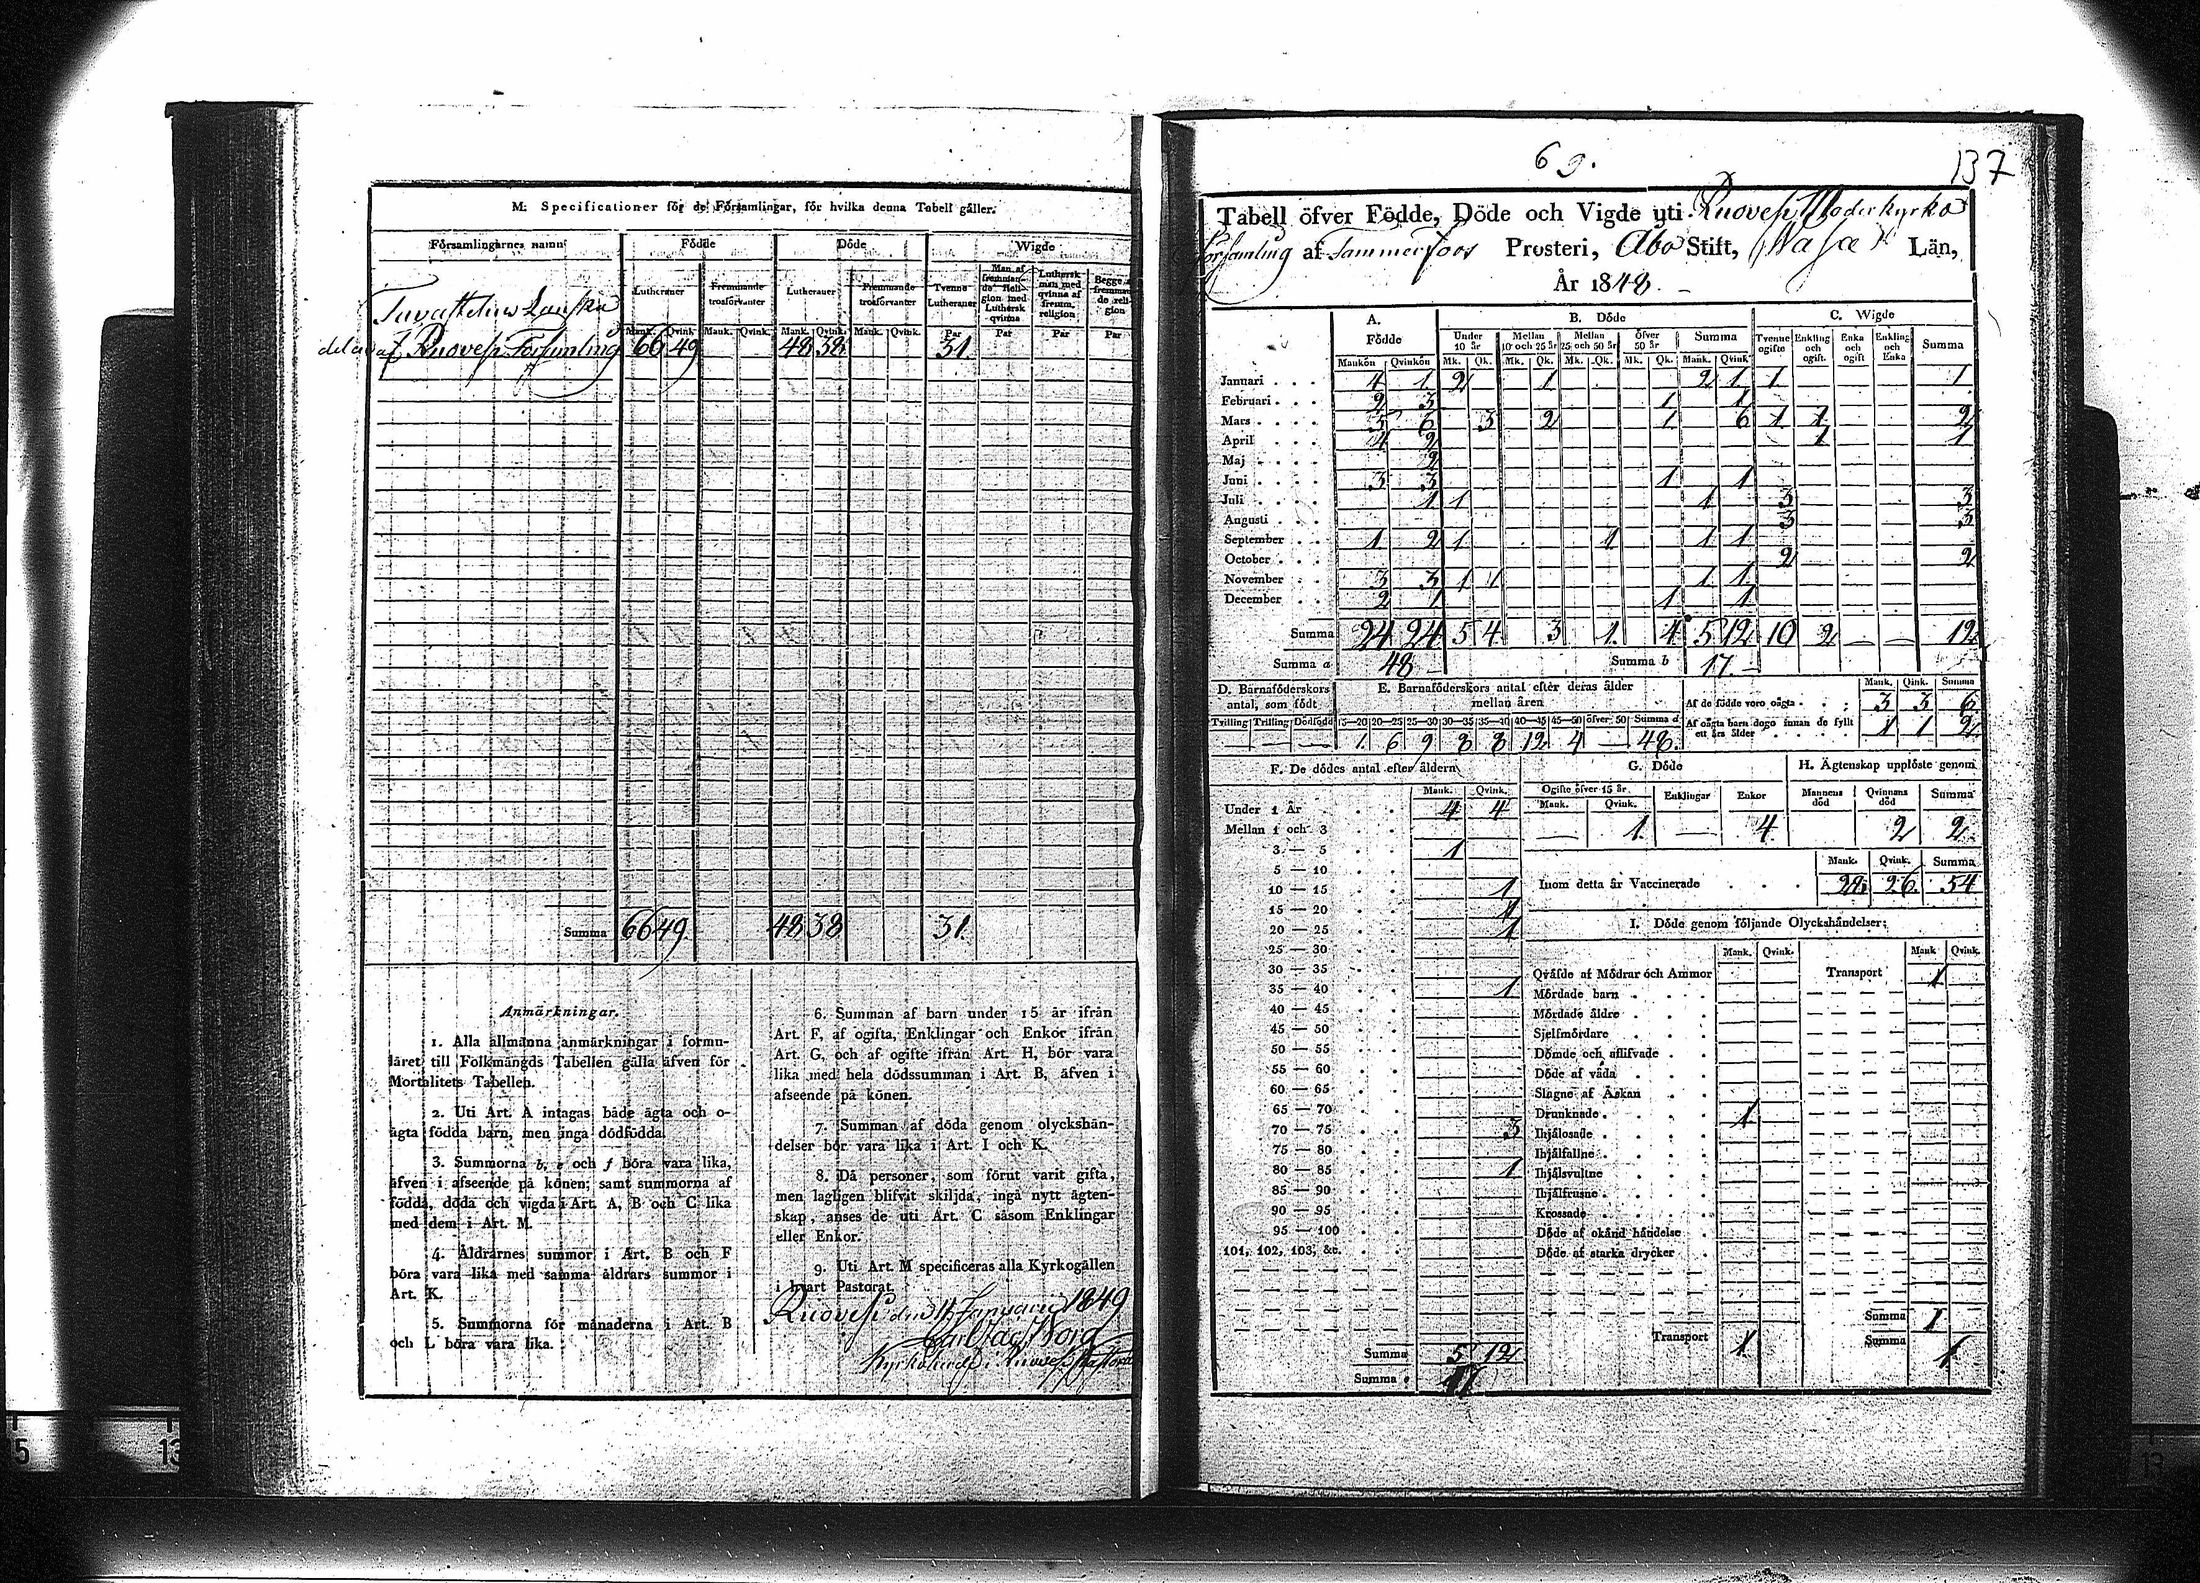 M. Specificationer för de Församlingar, för hvilka denna Tabell gäller.
Församlingarnes namn
Födde
Döde
Wigde
Lutheraner
Fremmande trosförvanter
Lutheraner
Fremmande trosförvanter
Tvenne Lutheraner
Man af fremmande Religion med Luthersk qvinna
Luthersk man med qvinna af fremm. religion
Begge af fremmande religion
Mank. Qvink. Mank. Qvink. Mank. Qvink. Mank. Qvink. Par Par Par Par
Tavastehus Länska
delen af Ruovesi Församling 66 49 48 38 31.
Summa 66 49. 48 38 31.
Anmärkningar.
1. Alla allmänna anmärkningar i formu-
läret till Folkmängds Tabellen gälla äfven för
Mortalitets Tabellen.
2. Uti Art. A intagas både ägta och o-
ägta födda barn, men inga dödfödda.
3. Summorna b, e och f böra vara lika,
äfven i afseende på könen; samt summorna af
födda, döda och vigda i Art. A, B och C lika
med dem i Art. M.
4. Åldrarnes summor i Art. B och F
böra vara lika med samma åldrars summor i
Art. K.
5. Summorna för månaderna i Art. B
och L böra vara lika.
6. Summan af barn under 15 år ifrån
Art. F, af ogifta, Enklingar och Enkor ifrån
Art. G, och af ogifte ifrån Art. H, bör vara
lika med hela dödssumman i Art. B, äfven i
afseende på könen.
7. Summan af döda genom olyckshän-
delser bör vara lika i Art. I och K.
8. Då personer, som förut varit gifta,
men lagligen blifvit skiljda, ingå nytt ägten-
skap, anses de uti Art. C såsom Enklingar
eller Enkor.
9. Uti Art. M specificeras alla Kyrkogällen
i hvart Pastorat.
Ruovesi den Januarii 1849
Kyrkoherde i Ruovesi Pastorat
69.
137
Tabell öfver Födde, Döde och Vigde uti Ruovesi Moderkyrko
församling af Tammerfors Prosteri, Åbo Stift, Wasa Län,
År 1848.
A. Födde
B. Döde
C. Wigde
Under 10 år
Mellan 10 och 25 år
Mellan 25 och 50 år
Öfver 50 år
Summa
Tvenne ogifte
Enkling och ogift.
Enka och ogift
Enkling och Enka
Summa
Mankön Qvinkön Mk. Qk. Mk. Qk. Mk. Qk. Mk. Qk. Mank. Qvink.
Januari 4 1 2 1 2 1 1 1
Februari 2 3 1 1
Mars 5 6 3 2 1 6 1 1 2
April 4 2 1 1
Maj 2
Juni 3 3 1 1
Juli 1 1 1 3 3
Augusti 3 3
September 1 2 1 1 1 1
October 2 2
November 3 3 1 1 1 1
December 2 1 1 1
Summa 24 24 5 4 3 1 4 5 12 10 2 — — 12
Summa a 48 Summa b 17.
D. Barnaföderskors antal, som födt
E. Barnaföderskors antal efter deras ålder mellan åren
Tvilling Trilling Dödfödd 15—20 20—25 25—30 30—35 35—40 40—45 45—50 öfver 50 Summa d
— — — 1 6 9 8 8 12 4 — 48.
Mank. Qink. Summa
Af de födde voro oägta 3 3 6.
Af oägta barn dogo innan de fyllt ett års ålder 1 1 2.
F. De dödes antal efter åldern
Mank. Qvink.
Under 1 År 4 4
Mellan 1 och 3
3 — 5 1
5 — 10
10 — 15 1
15 — 20 1
20 — 25 1
25 — 30
30 — 35
35 — 40 1
40 — 45
45 — 50
50 — 55
55 — 60
60 — 65
65 — 70
70 — 75 3
75 — 80
80 — 85 1
85 — 90
90 — 95
95 — 100
101, 102, 103, &c.
Summa 5 12
Summa e 17
G. Döde
Ogifte öfver 15 år
Mank. Qvink. Enklingar Enkor
— 1 — 4
H. Ägtenskap upplöste genom
Mannens död Qvinnans död Summa
2 2
Mank. Qvink. Summa
Inom detta år Vaccinerade 28 26 54
I. Döde genom följande Olyckshändelser:
Mank. Qvink. Mank Qvink.
Qväfde af Mödrar och Ammor Transport 1
Mördade barn
Mördade äldre
Sjelfmördare
Dömde och aflifvade
Döde af våda
Slagne af Åskan
Drunknade 1
Ihjälosade
Ihjälfallne
Ihjälsvultne
Ihjälfrusne
Krossade
Döde af okänd händelse
Döde af starka drycker
Summa 1
Transport 1 Summa 1
5
13
13